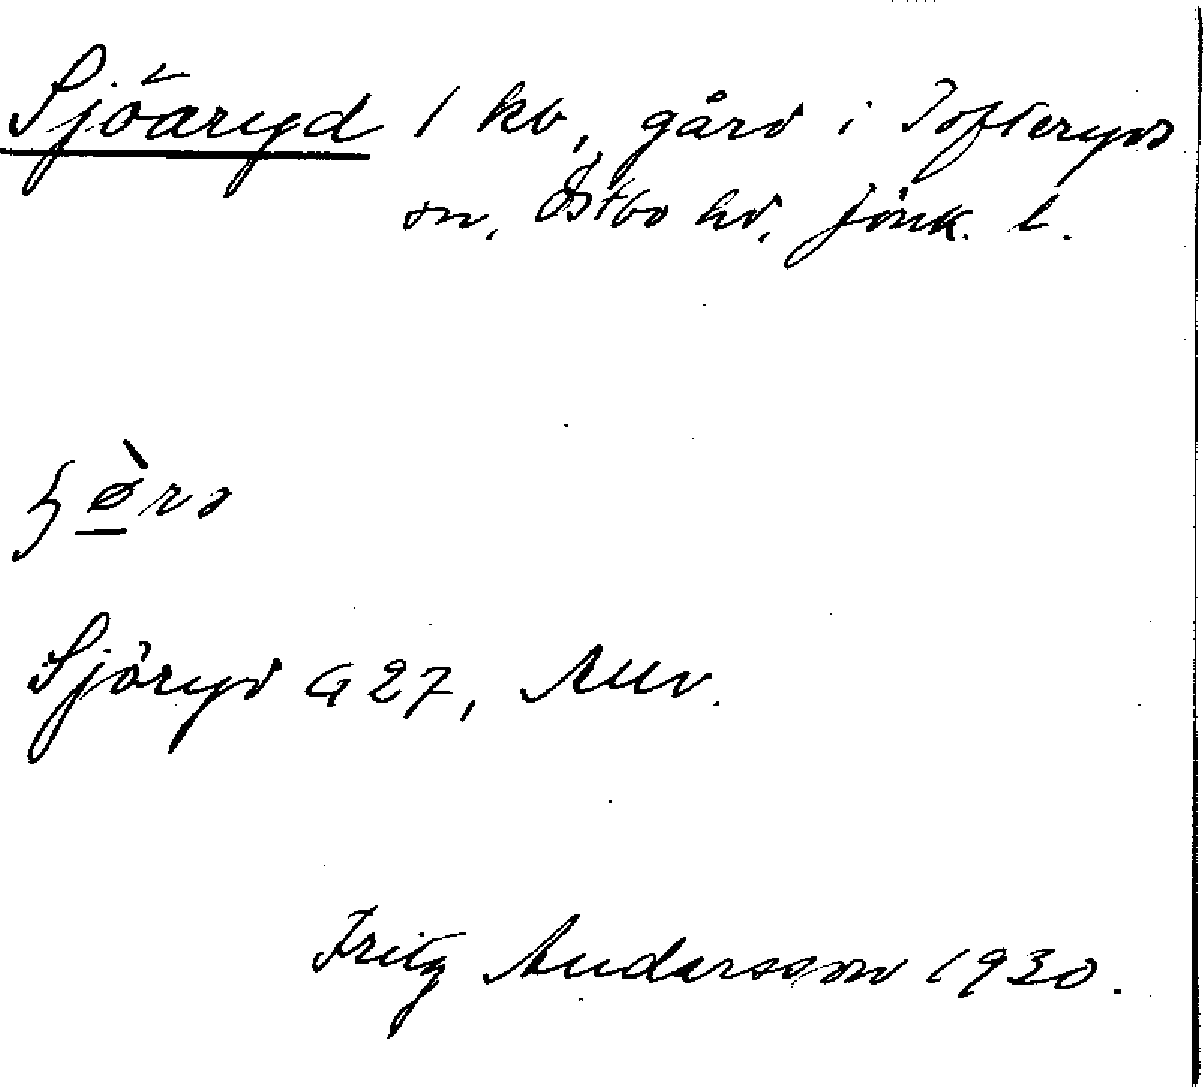 Sjöaryd 1 kb, gård i Tofteryds
sn, Östbo hd, Jönk. l.
Sjöryd G 27,
Fritz Andersson 1930.